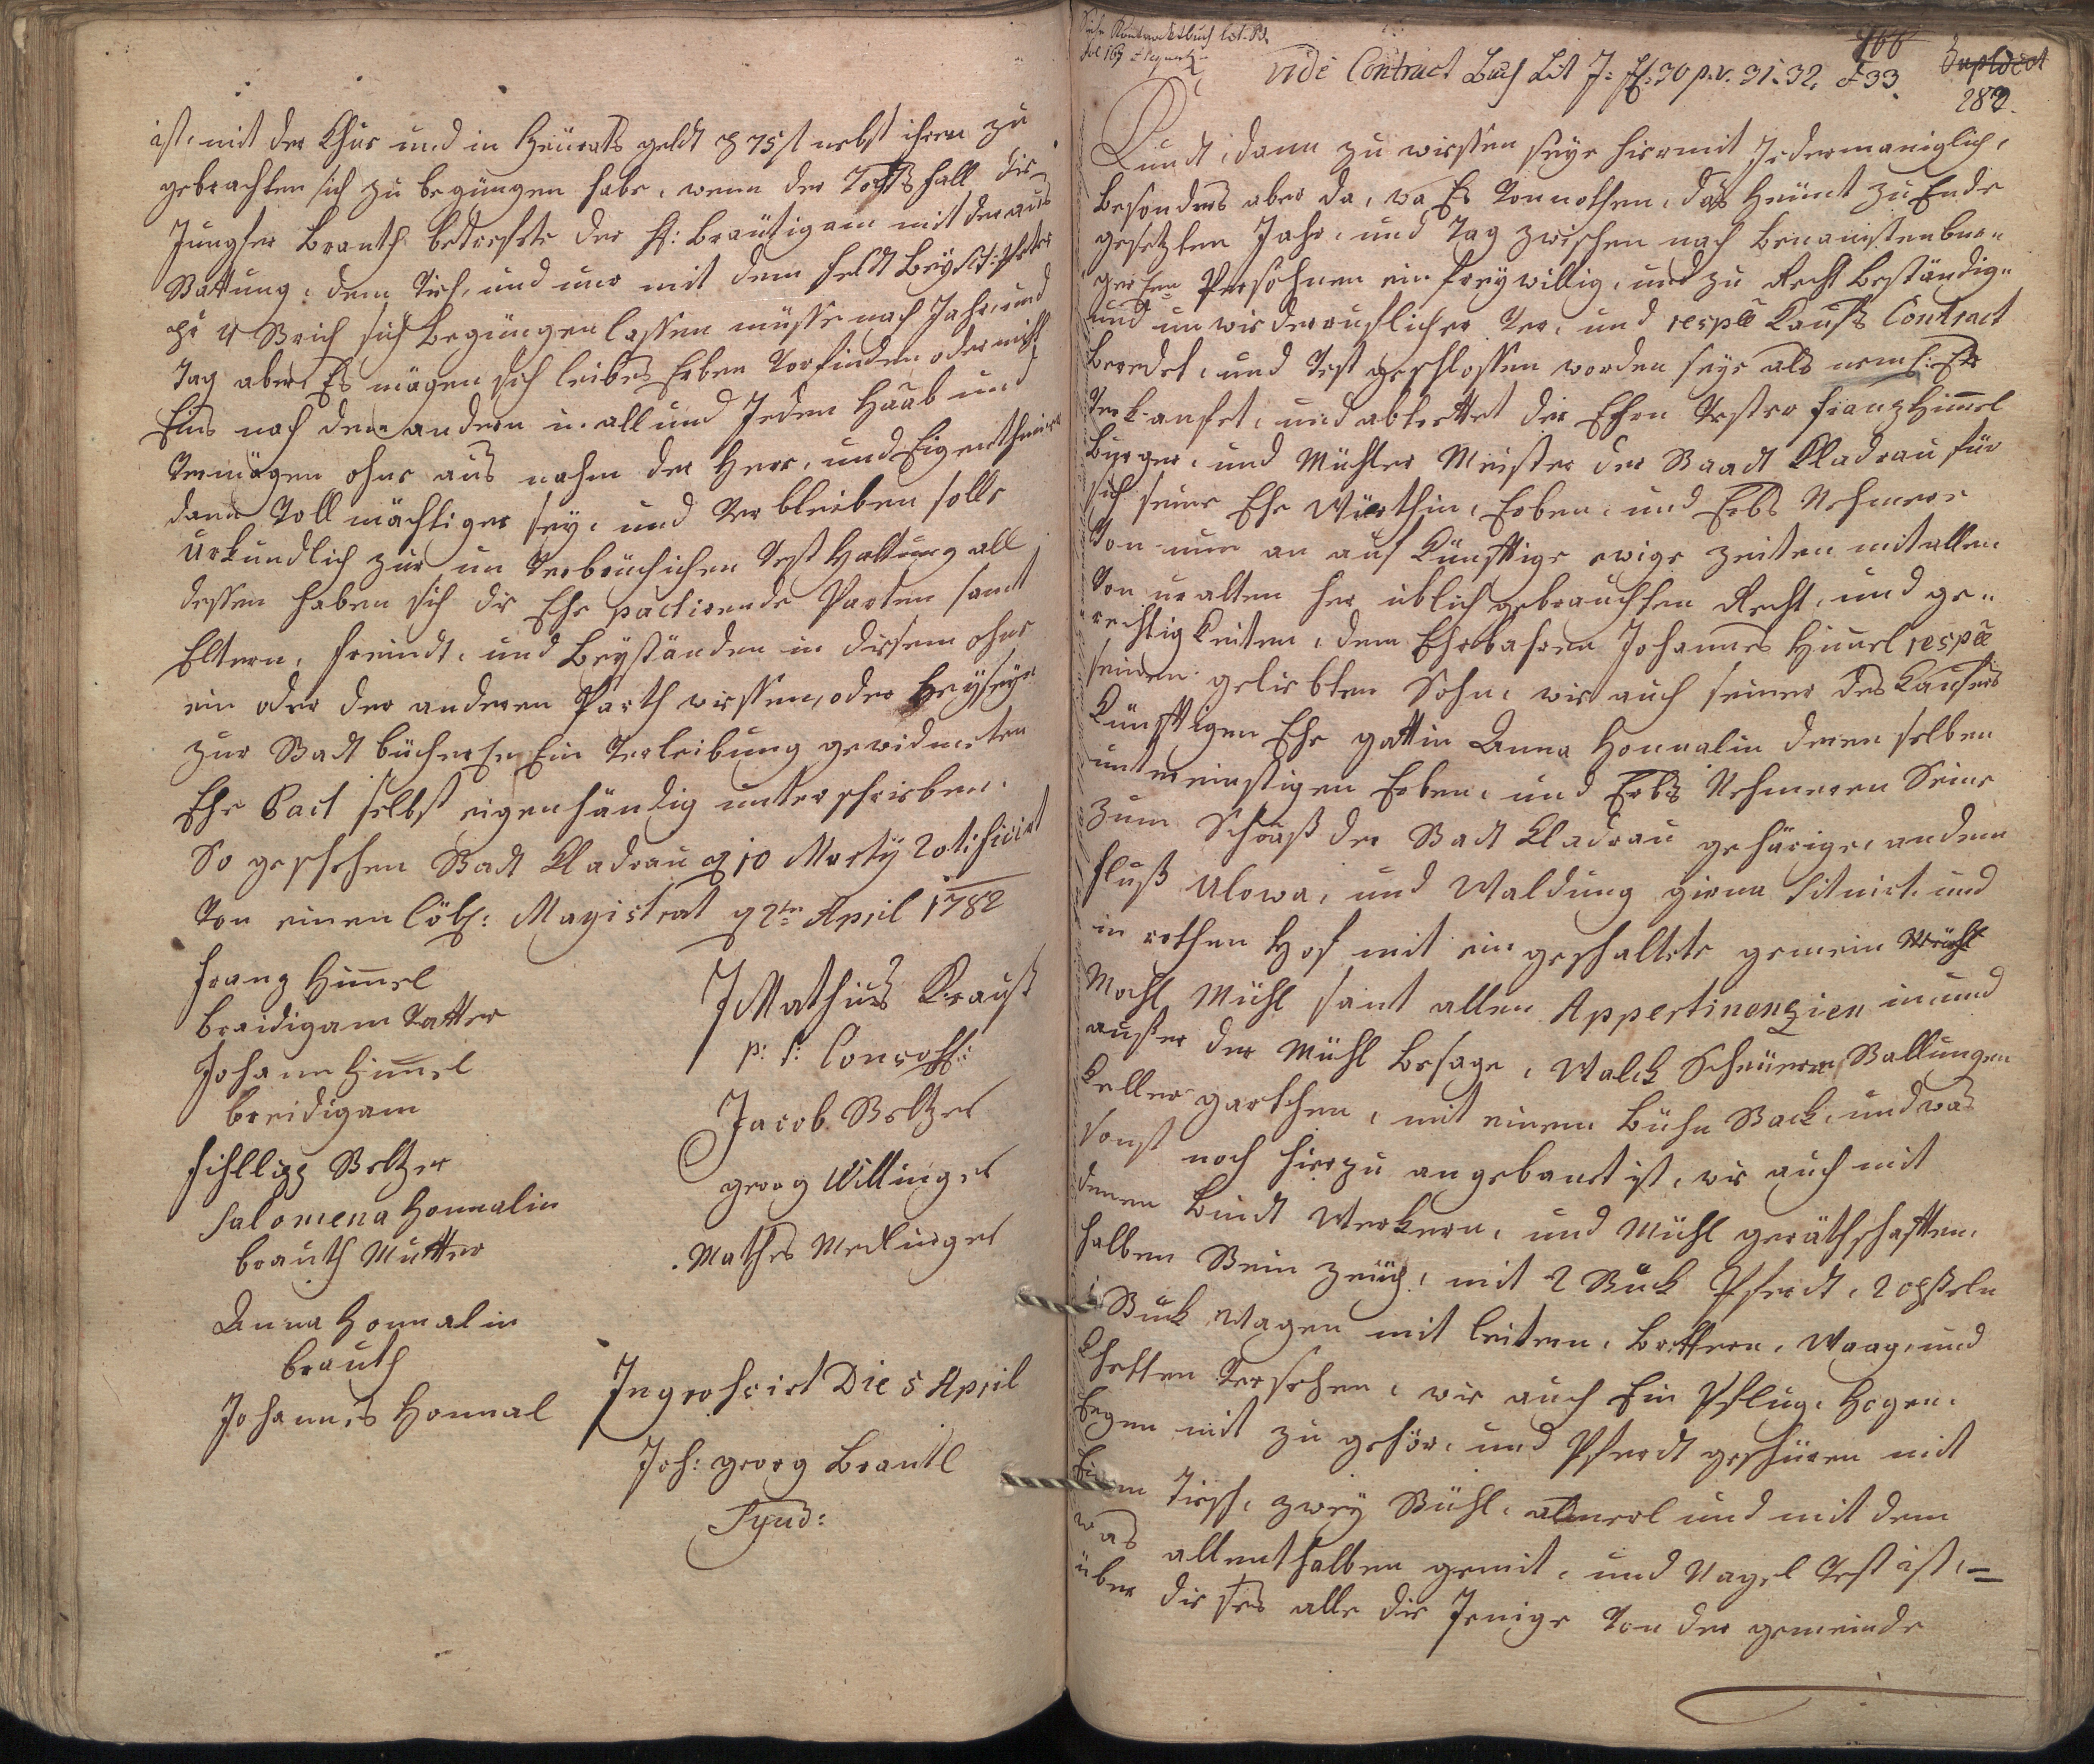 ist, mit der Khue und in Heürats geldt p 75 f nebst ihren zu
gebrachten sich zu begnügen habe, wenn der Todts fall die
Jungfer Brauth betreffete der H: Bräutigam mit der aus
Stattung, dem Tisch, und nur mit dem
pr 4 Strich sich begnügen lassen müsse nach Jahr, und
Tag aber Es mögen sich leibes Erben vorfinden oder nicht
Eins nach dem andern in all und Jeden Haab und
Vermögen ohne aus nahm der Herr, und Eigenthümer
dann Voll mächtiger sey, und Verbleiben solle
Urkundlich zur un Verbrüchichen Vest Haltung all
dessen haben sich die Ehe pactirende Parten samt
Eltern, freündt, und Beyständen in diesem ohne
ein oder der anderen Parth wissen, oder beyseyn
zur Stadt bücher Ein Verleibung gewidmeten
Ehe Pact selbst eigenhändig unterschrieben.
So geschehen Stadt Kladrau d 10 Marty Ratificirt
Von einen löbl: Magistrat d 2te April 1782
Frantz Himel
breidigam Vatter
Johann Himel
breidigam
Fihllipp Steltzer
Salomena Honnalin
brauth Mutter
Anna Honnalin
brauth
Johannes Honnal
J Mathius Krauß
p: t: Consohl:
Jacob Steltzer
georg Willinger
Mathes Medlinger
Ingrohsirt Die 5 April
Joh: georg Brantl
Synd:
Siehe Kontraktbuch lit. B.
fol 169
vide Contract Buch Lit J: fol: 30 p. v. 31. 32. & 33.
166
282.
Kundt, dann zu wissen seye hiermit Jedermäniglich,
besonders aber da, wo Es Vonnothen, daß Heunt zu Ende
gesetzten Jahr, und Tag zwischen nach benansten bur-
gerhen Persohnen ein freywillig, und zu Recht beständig-
und un wiederruflicher Ver, und respve Kaufs Contract
beredet, und Vest geschlossen worden seye als neml: Es
Verkaufet, und abtrettet der Ehren Vester Frantz Himel
Burger, und Mühler Meister der Staadt Kladrau für
sich seine Ehe Würthin, Erben, und Erbs Nehmere
Von nun an auf Künfftige ewige zeiten mit allen
Von uralten her üblich gebrauchten Recht, und ge-
rechtig Keiten, dem Ehrbahren Johannes Himel respve
seinen geliebten Sohn, wie auch seiner des Kaufers
Künfftigen Ehe gattin Anna Honnalin denen selben
unter einstigen Erben, und Erbs Nehmeren Seine
zum Schoß der Stadt Kladrau gehörige, an dem
Fluß Ulowa, und Waldung situirt, und
in rothen Hof mit ein geschaltete gemein
Mahl Mühl samt allen Appertinenzien in, und
außer der Mühl besage, Walck Scheüern, Stallungen
Keller gartchen, mit einem Back, und was
sonst noch hierzu angebauet ist, wie auch mit
denen Bundt Werkern, und Mühl geräthschafften,
halben Stein zeüg, mit 2 Stuk Pferdt, 2 ochseln
1 Stuck Wagen mit leitern, brettern, Waag, und
Khetten Versehen, wie auch Ein Pflug, Hogen,
Eegen mit zu gehör, und Pferdt geschüren mit
Einem Tisch, zwey Stühl, allmerl und mit dem
was allenthalben geniet, und Nagel Vest ist, =
über dieses alle die Jenige Von der gemeinde